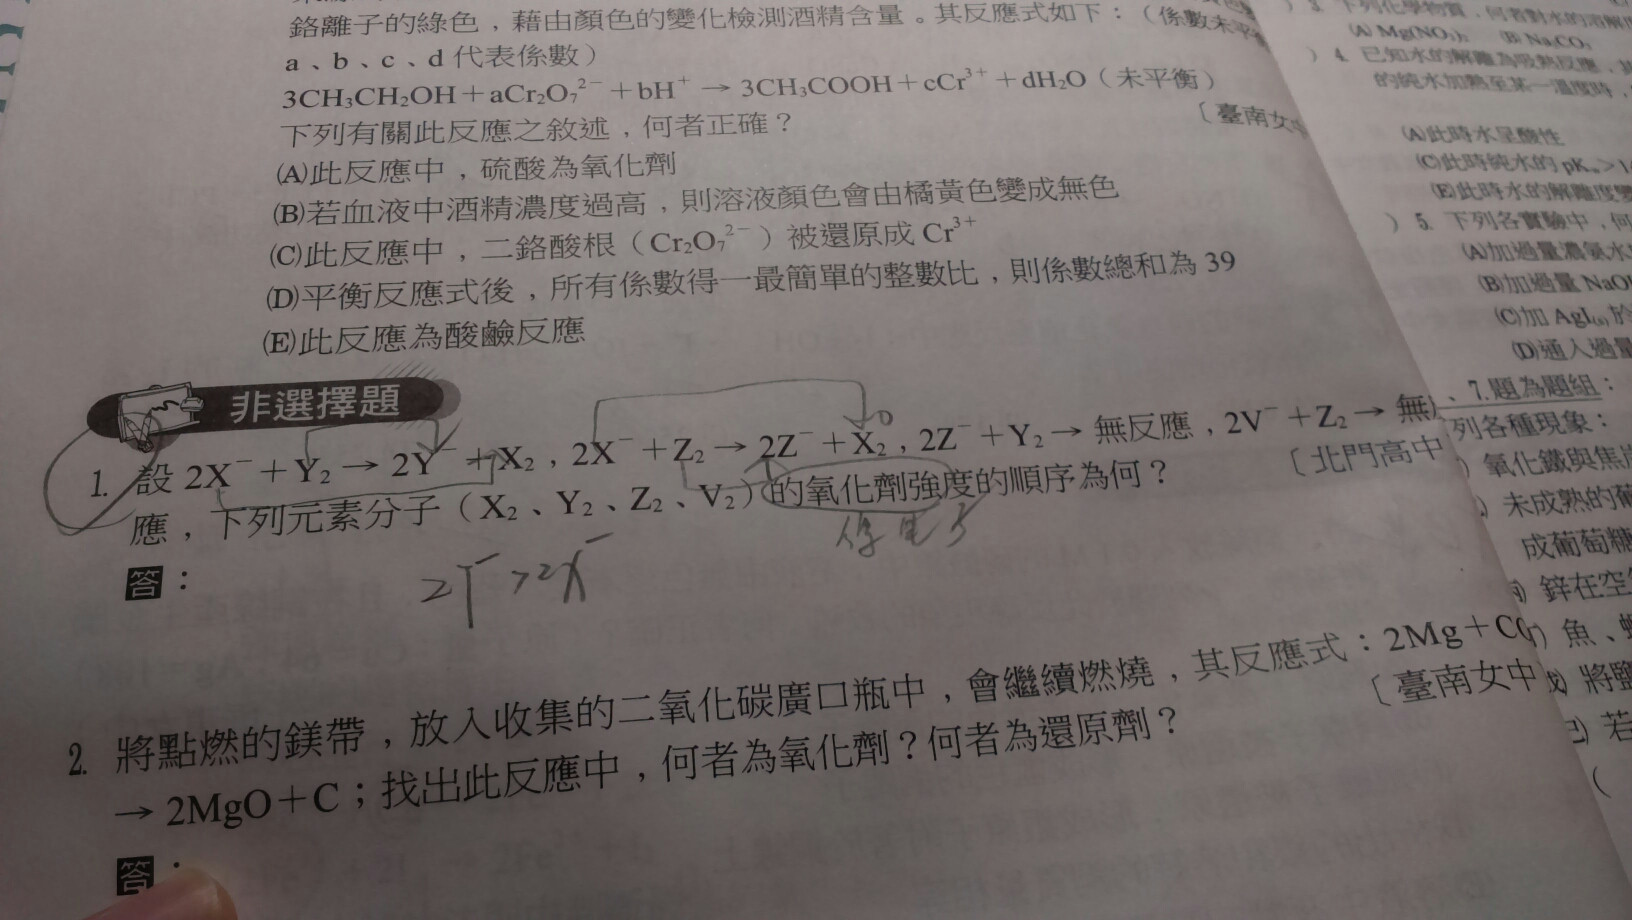 鉻離子的綠色，藉由顏色的變化檢測酒精含量。其反應式如下：（係數未平
a、b、c、d 代表係數）
3CH₃CH₂OH＋aCr₂O₇²⁻＋bH⁺→3CH₃COOH＋cCr³⁺＋dH₂O（未平衡）
下列有關此反應之敘述，何者正確？
〔臺南女中
(A)此反應中，硫酸為氧化劑
(B)若血液中酒精濃度過高，則溶液顏色會由橘黃色變成無色
(C)此反應中，二鉻酸根（Cr₂O₇²⁻）被還原成 Cr³⁺
(D)平衡反應式後，所有係數得一最簡單的整數比，則係數總和為 39
(E)此反應為酸鹼反應
非選擇題
1. 設 2X⁻＋Y₂→2Y⁻＋X₂，2X⁻＋Z₂→2Z⁻＋X₂，2Z⁻＋Y₂→無反應，2V⁻＋Z₂→無
應，下列元素分子（X₂、Y₂、Z₂、V₂）的氧化劑強度的順序為何？
〔北門高中
答：
2Y⁻＞2X⁻
2. 將點燃的鎂帶，放入收集的二氧化碳廣口瓶中，會繼續燃燒，其反應式：2Mg＋CO
→2MgO＋C；找出此反應中，何者為氧化劑？何者為還原劑？
〔臺南女中
答：
3. 下列化學物質，何者對水的溶解
(A) Mg(NO₃)₂ (B) Na₂CO₃
) 4. 已知水的解離為吸熱反應，
的純水加熱至某一溫度時，
(A)此時水呈酸性
(C)此時純水的 pKw＞1
(E)此時水的解離度變
) 5. 下列各實驗中，何
(A)加過量濃氨水
(B)加過量 NaO
(C)加 AgI(s)於
(D)通入過量
、7.題為題組：
列各種現象：
) 氧化鐵與焦炭
未成熟的葡
成葡萄糖
鋅在空氣
魚、
將鹽
若
(